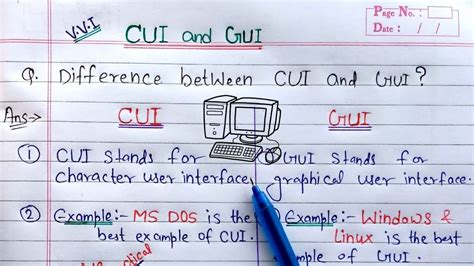 V.V.I
CUI and GUI
Page No. :
Date : / /
Q. Difference between CUI and GUI ?
Ans:->
CUI
GUI
① CUI stands for
character user interface
GUI stands for
graphical user interface.
② Example:- MS DOS is the
best example of CUI.
Example:- Windows &
Linux is the best
example of GUI.